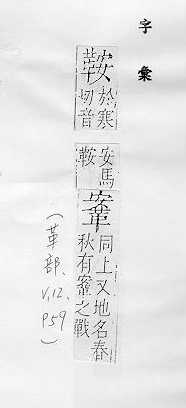 字彙
鞍
於寒
切音
安馬
鞍
鞌
同上又地名春
秋有鞌之戰
(革部、V.12、P59)